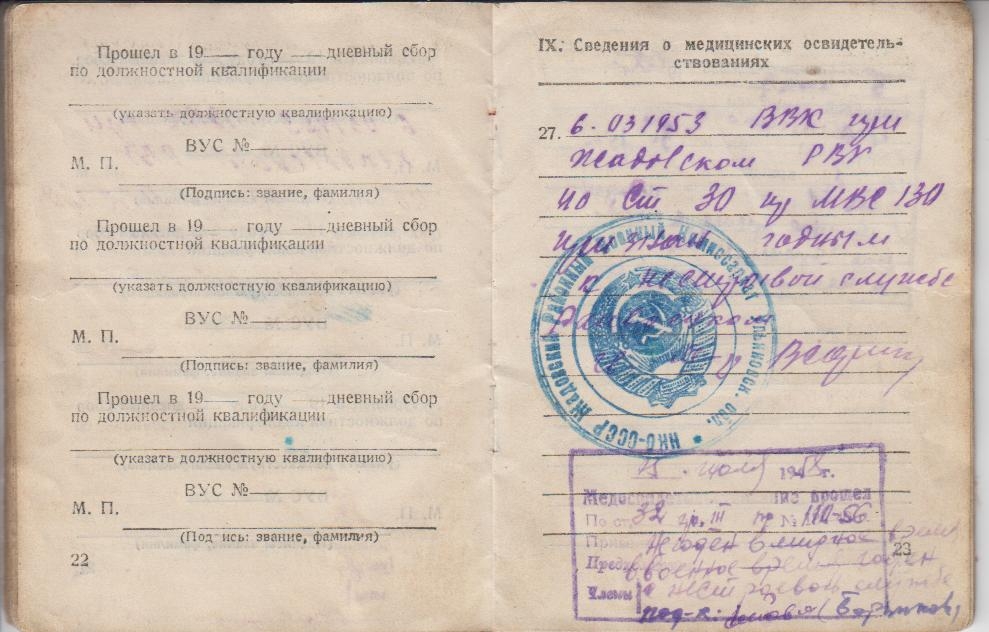 Прошел в 19 году дневный сбор
по должностной квалификации
(указать должностную квалификацию)
ВУС №
М. П.
(Подпись: звание, фамилия)
Прошел в 19 году дневный сбор
по должностной квалификации
(указать должностную квалификацию)
ВУС №
М. П.
(Подпись: звание, фамилия)
Прошел в 19 году дневный сбор
по должностной квалификации
(указать должностную квалификацию)
ВУС №
М. П.
(Подпись: звание, фамилия)
22
IX. Сведения о медицинских освидетель-
ствованиях
27. 6.031953 ВВК при
Жадовском РВК
по ст 30 пр МВС 130
годным
к нестроевой службе
НКО-СССР ЖАДОВСКИЙ РАЙОННЫЙ ВОЕННЫЙ КОМИССАРИАТ УЛЬЯНОВСК. ОБЛ.
15 июля г.
прошел
По ст. 32 гр. III пр № 110-56
Не годен в мирное время
в военное время годен
к нестроевой службе
Члены
23